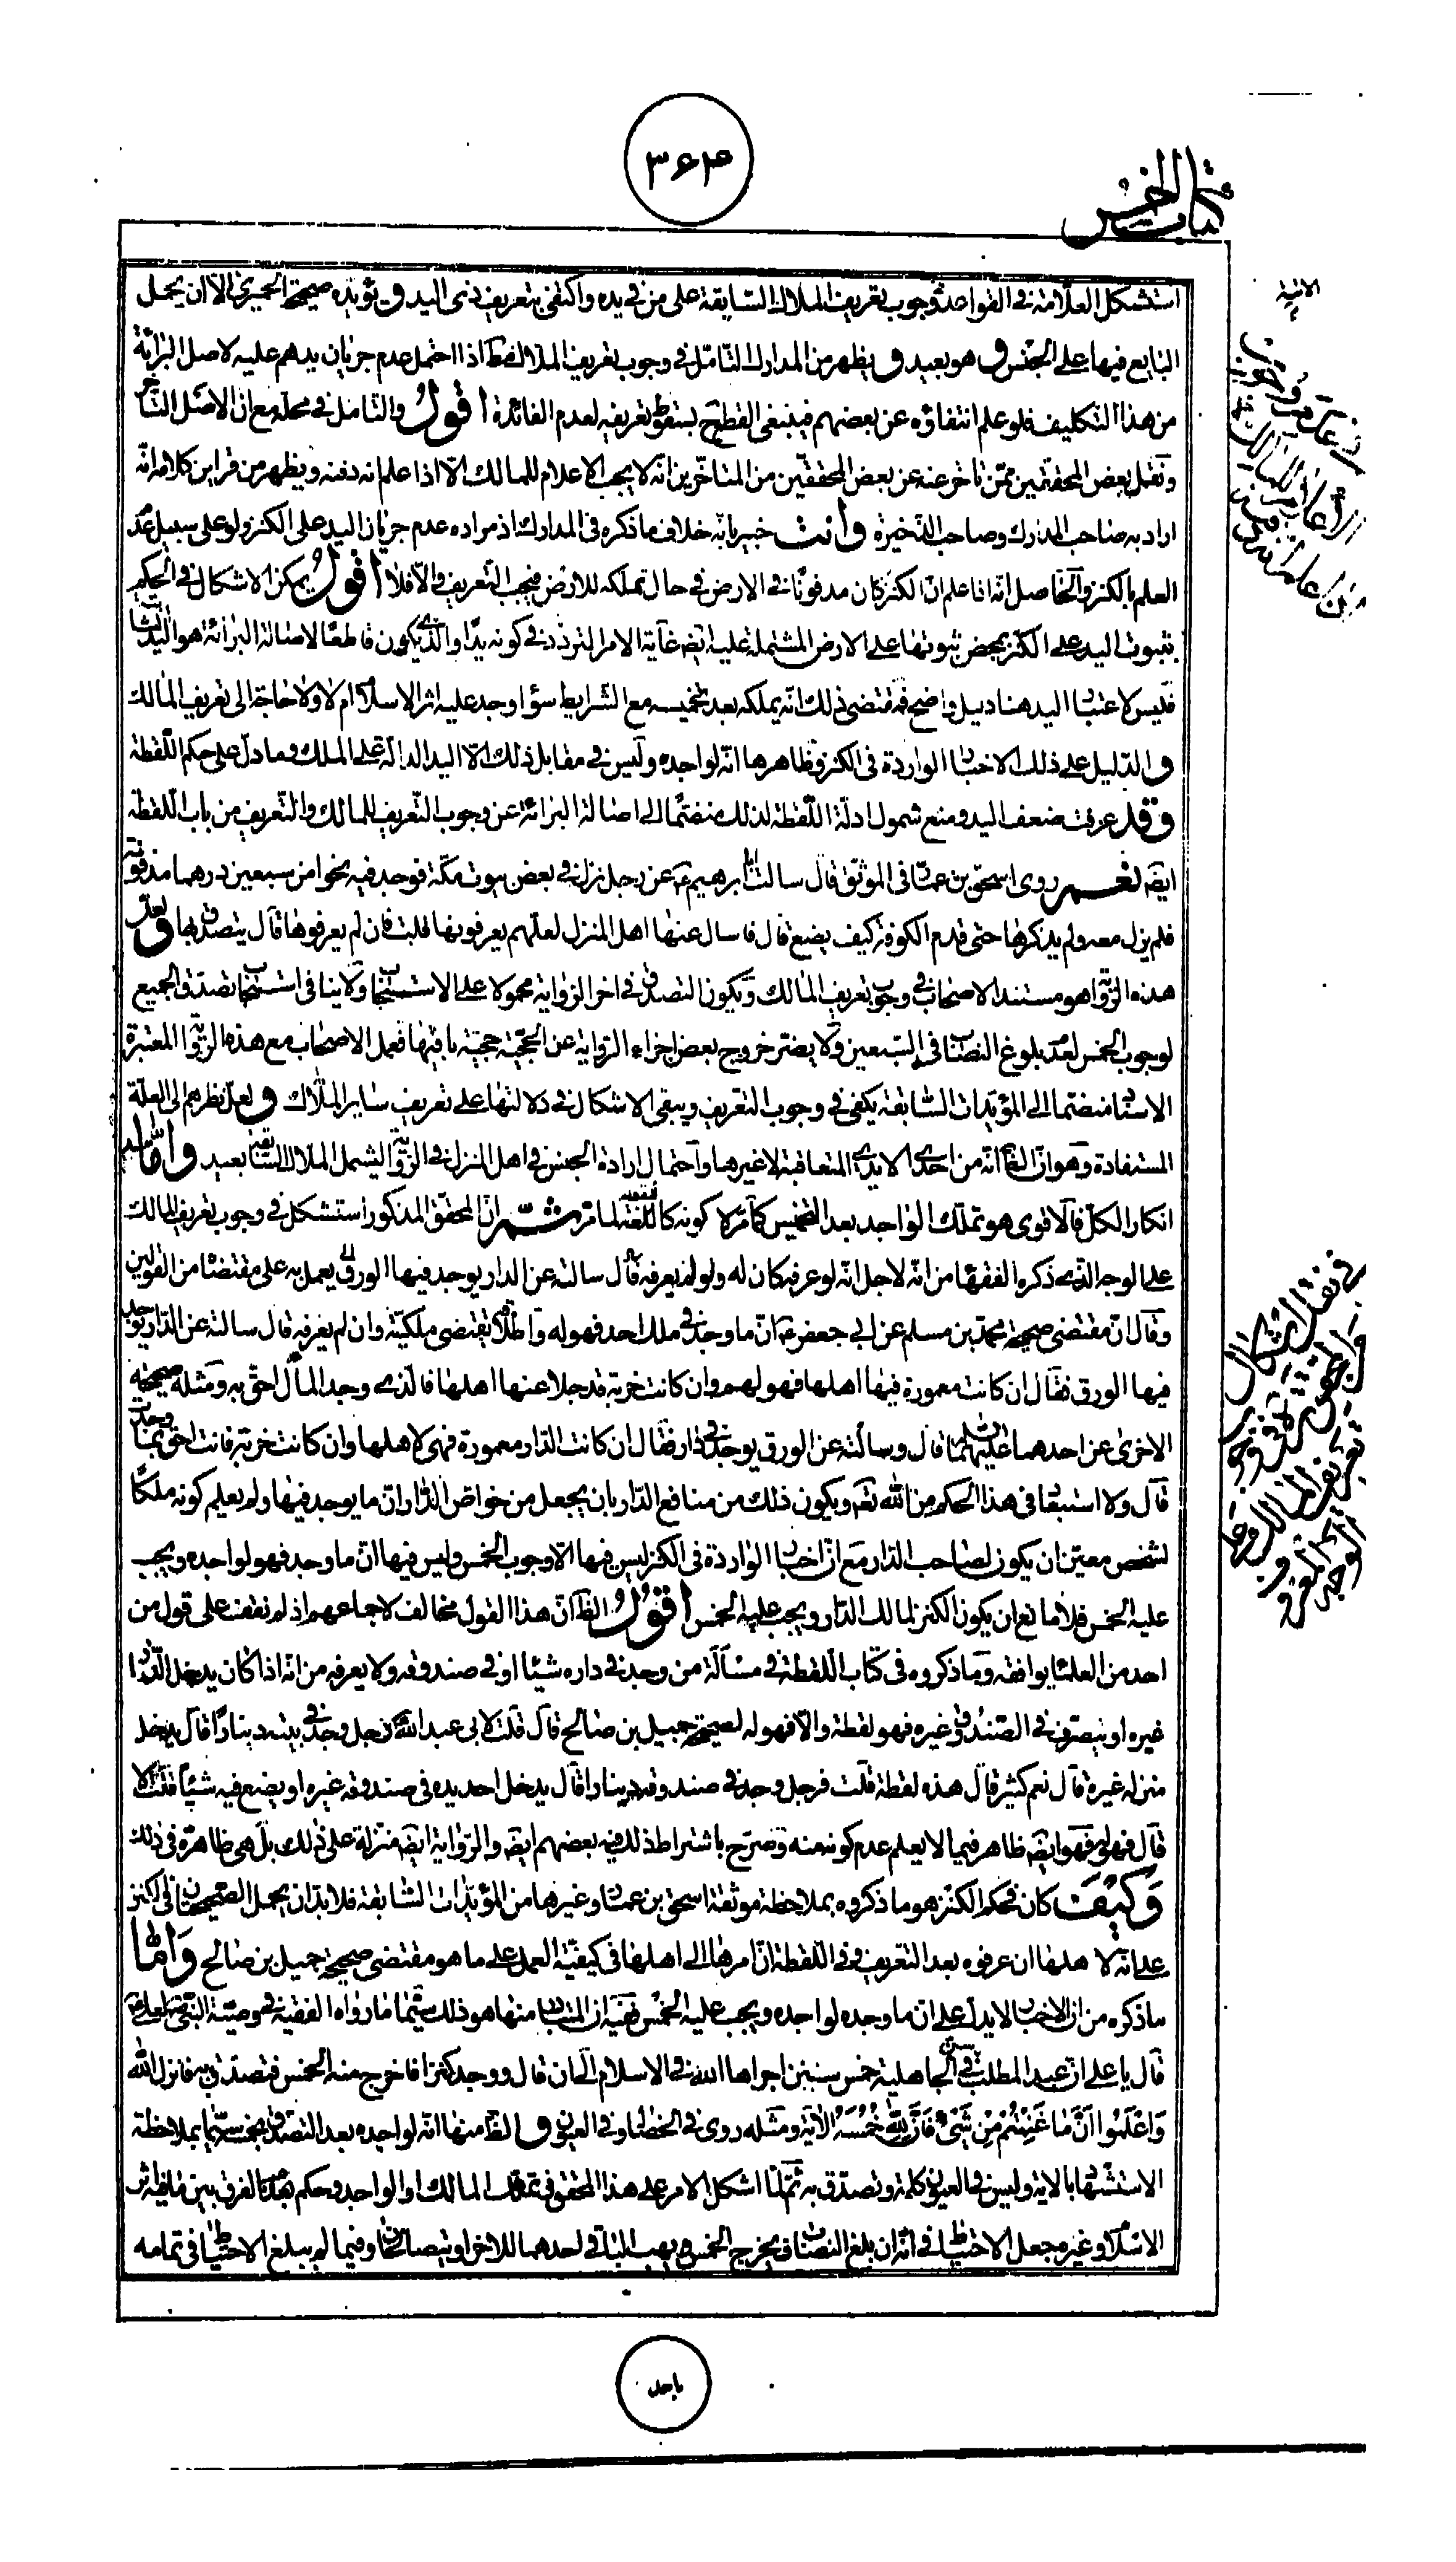 ۳۶۴
كتاب الخمس
استشكل العلامة في القواعد في وجوب تعريف الملاك السابقة على من في يده واكتفى بتعريف ذي اليد ويؤيده صحيحة الحميري الا ان يحمل
البايع فيها على الجنس وهو بعيد ويظهر من المدارك التامل في وجوب تعريف الملاك فقط اذا احتمل عدم جريان يدهم عليه لاصل البرائة
من هذا التكليف فلو علم انتفاؤه عن بعضهم فينبغي القطع بسقوط تعريفه لعدم الفائدة اقول والتامل في محله مع ان الاصل التاخر
ونقل بعض المحققين ممن تاخر عنه عن بعض المحققين من المتاخرين انه لا يجب الاعلام للمالك الا اذا علم انه دفنه ويظهر من قراين كلامه انه
اراد به صاحب المدارك وصاحب الذخيرة وانت خبير بانه خلاف ما ذكره في المدارك اذ مراده عدم جريان اليد على الكنز ولو على سبيل عدم
العلم بالكنز والحاصل انه اذا علم ان الكنز كان مدفونا في الارض في حال تملكه للارض فيجب التعريف والا فلا اقول يمكن الاشكال في الحكم
بثبوت اليد على الكنز بمحض ثبوتها على الارض المشتملة عليه ايضا غاية الامر التردد في كونه يدا والذي يكون قاطعا لاصالة البرائة هو اليد الثابتة
فليس لاعتبار اليد هنا دليل واضح فمقتضى ذلك انه يملكه بعد تخميسه مع الشرايط سواء وجد عليه اثر الاسلام ام لا ولا حاجة الى تعريف المالك
والدليل على ذلك الاخبار الواردة في الكنز وظاهرها انه لواجده وليس في مقابل ذلك الا اليد الدالة على الملك وما دل على حكم اللقطة
وقد عرفت ضعف اليد ومنع شمول ادلة اللقطة لذلك منضما الى اصالة البرائة عن وجوب التعريف للمالك والتعريف من باب اللقطة
ايضا نعم روى اسحق بن عمار في الموثق قال سالت ابا ابرهيم ع عن رجل نزل في بعض بيوت مكة فوجد فيه نحوا من سبعين درهما مدفونة
فلم يزل معه ولم يذكرها حتى قدم الكوفة كيف يصنع قال فاسال عنها اهل المنزل لعلهم يعرفونها قلت فان لم يعرفوها قال يتصدق بها ولعل
هذه الرواية هو مستند الاصحاب في وجوب تعريف المالك ويكون التصدق في اخر الرواية محمولا على الاستحباب ولا ينافي استحباب تصدق الجميع
لوجوب الخمس لعدم بلوغ النصاب في السبعين ولا يضر خروج بعض اجزاء الرواية عن الحجية حجية باقيها فعمل الاصحاب مع هذه الرواية المعتبرة
الاسناد منضما الى المؤيدات السابقة يكفي في وجوب التعريف ويبقى الاشكال في دلالتها على تعريف ساير الملاك ولعل نظرهم الى العلة
المستفادة وهو ان الظاهر انه من احدى الايدي المتعاقبة لا غيرها واحتمال ارادة الجنس في اهل المنزل في الرواية ليشمل الملاك السابقة بعيد واما مع
انكار الكل فالاقوى هو تملك الواجد بعد الخميس كما مر لا كونه كاللقطة لما مر ثم ان المحقق المذكور استشكل في وجوب تعريف المالك
على الوجه الذي ذكره الفقهاء من انه لاجل انه لو عرفه كان له ولو لم يعرفه قال سالته عن الدار يوجد فيها الورق يعمل به على مقتضاه من القولين
وقال ان مقتضى صحيحة محمد بن مسلم عن ابي جعفر ع ان ما وجد في ملك احد فهو له واطلاقه يقتضي ملكيته وان لم يعرفه قال سالته عن الدار يوجد
فيها الورق فقال ان كانت معمورة فيها اهلها فهو لهم وان كانت خربة قد جلا عنها اهلها فالذي وجد المال احق به ومثله صحيحته
الاخرى عن احدهما عليهما السلام قال وسالته عن الورق يوجد في دار فقال ان كانت الدار معمورة فهي لاهلها وان كانت خربة فانت احق بما وجدت
قال ولا استبعاد في هذا الحكم من الله تعم ويكون ذلك من منافع الدار بان يجعل من خواص الدار ان ما يوجد فيها ولم يعلم كونه ملكا
لشخص معين ان يكون لصاحب الدار مع ان اخبار الواردة في الكنز ليس فيها الا وجوب الخمس وليس فيها ان ما وجد فهو لواجده ويجب
عليه الخمس فلا مانع ان يكون الكنز لمالك الدار ويجب عليه الخمس اقول الظاهر ان هذا القول مخالف لاجماعهم اذ لم نقف على قول من
احد من العلماء يوافقه وما ذكروه في كتاب اللقطة في مسألة من وجد في داره شيئا او في صندوقه ولا يعرفه من انه اذا كان يدخل الدار
غيره او يتصرف في الصندوق غيره فهو لقطة والا فهو له لصحيحة جميل بن صالح قال قلت لابي عبد الله رجل وجد في بيته دينارا قال يدخل
منزله غيره قال نعم كثير قال هذه لقطة قلت فرجل وجد في صندوقه دينارا قال يدخل احد يده في صندوقه غيره او يضع فيه شيئا قلت لا
قال فهو له فهو ايضا ظاهر فيما لا يعلم عدم كونه منه وصرح باشتراط ذلك فيه بعضهم ايضا والرواية ايضا منزلة على ذلك بل هي ظاهرة في ذلك
وكيف كان فحكم الكنز هو ما ذكروه بملاحظة موثقة اسحق بن عمار وغيرها من المؤيدات السابقة فلا بد ان يحمل الصحيحتان في الكنز
على انه لاهلها ان عرفوه بعد التعريف وفي اللقطة ان امرها الى اهلها في كيفية العمل على ما هو مقتضى صحيحة جميل بن صالح واما
ما ذكره من ان الاخبار لا يدل على ان ما وجده لواجده ويجب عليه الخمس ففيه ان المتبادر منها هو ذلك سيما ما رواه الفقيه في وصية النبي ص لعلي ع
قال يا علي ان عبد المطلب سن في الجاهلية خمس سنن اجراها الله في الاسلام الى ان قال ووجد كنزا فاخرج منه الخمس فتصدق به فانزل الله
وَاعْلَمُوا أَنَّ مَا غَنِمْتُمْ مِنْ شَيْءٍ فَأَنَّ لِلَّهِ خُمُسَهُ الاية ومثله روى في الخصال وفي العيون والظاهر منها انه لواجده بعد التصدق بخمسه سيما بملاحظة
الاستشهاد بالاية وليس في العيون كلمة وتصدق به ثم لما اشكل الامر على هذا المحقق في تملك المالك او الواجد وحكم بعدم الفرق بين ما فيه اثر
الاسلام وغيره جعل الاحتياط في انه ان بلغ النصاب فيخرج الخمس ويهب الباقي احدهما للاخر او يتصالحان وفيما لم يبلغ الاحتياط في تمامه
باحد